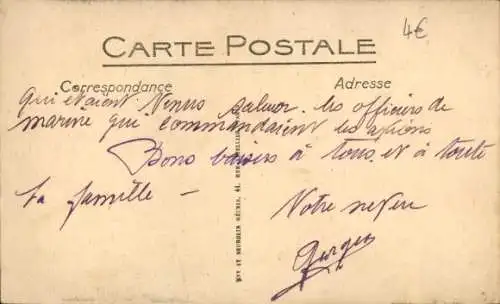 4€
CARTE POSTALE
Correspondance
Adresse
qui étaient venus saluer les officiers de
marine qui commandaient les avions
Bons baisers à tous et à toute
la famille -
Votre neveu